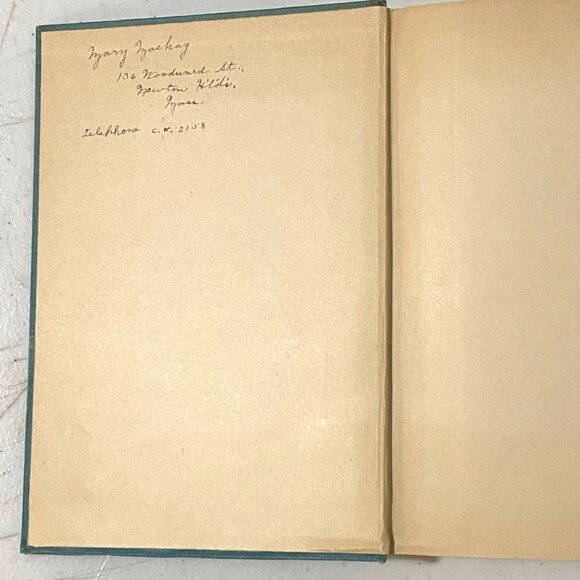 Mary Mackay
136 Woodward St.,
Newton H'l'd's,
Mass.
telephone c. n. 2158